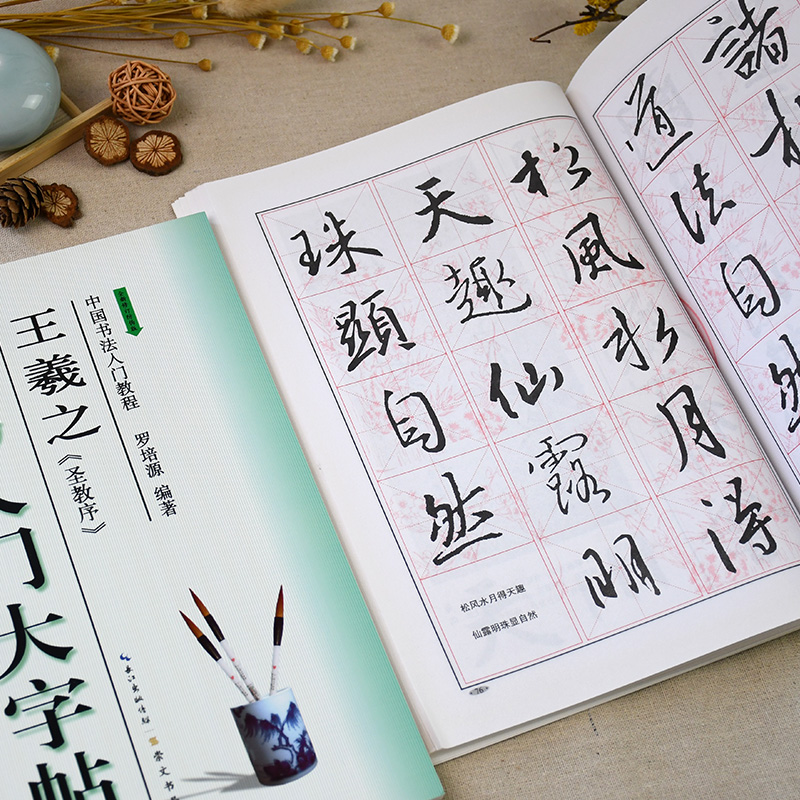 中国书法入门教程 罗培源 编著
王羲之《圣教序》
入门大字帖
长江出版传媒
崇文书
諸
道法自然
松風水月得
天趣仙露明
珠顯自然
松风水月得天趣
仙露明珠显自然
76